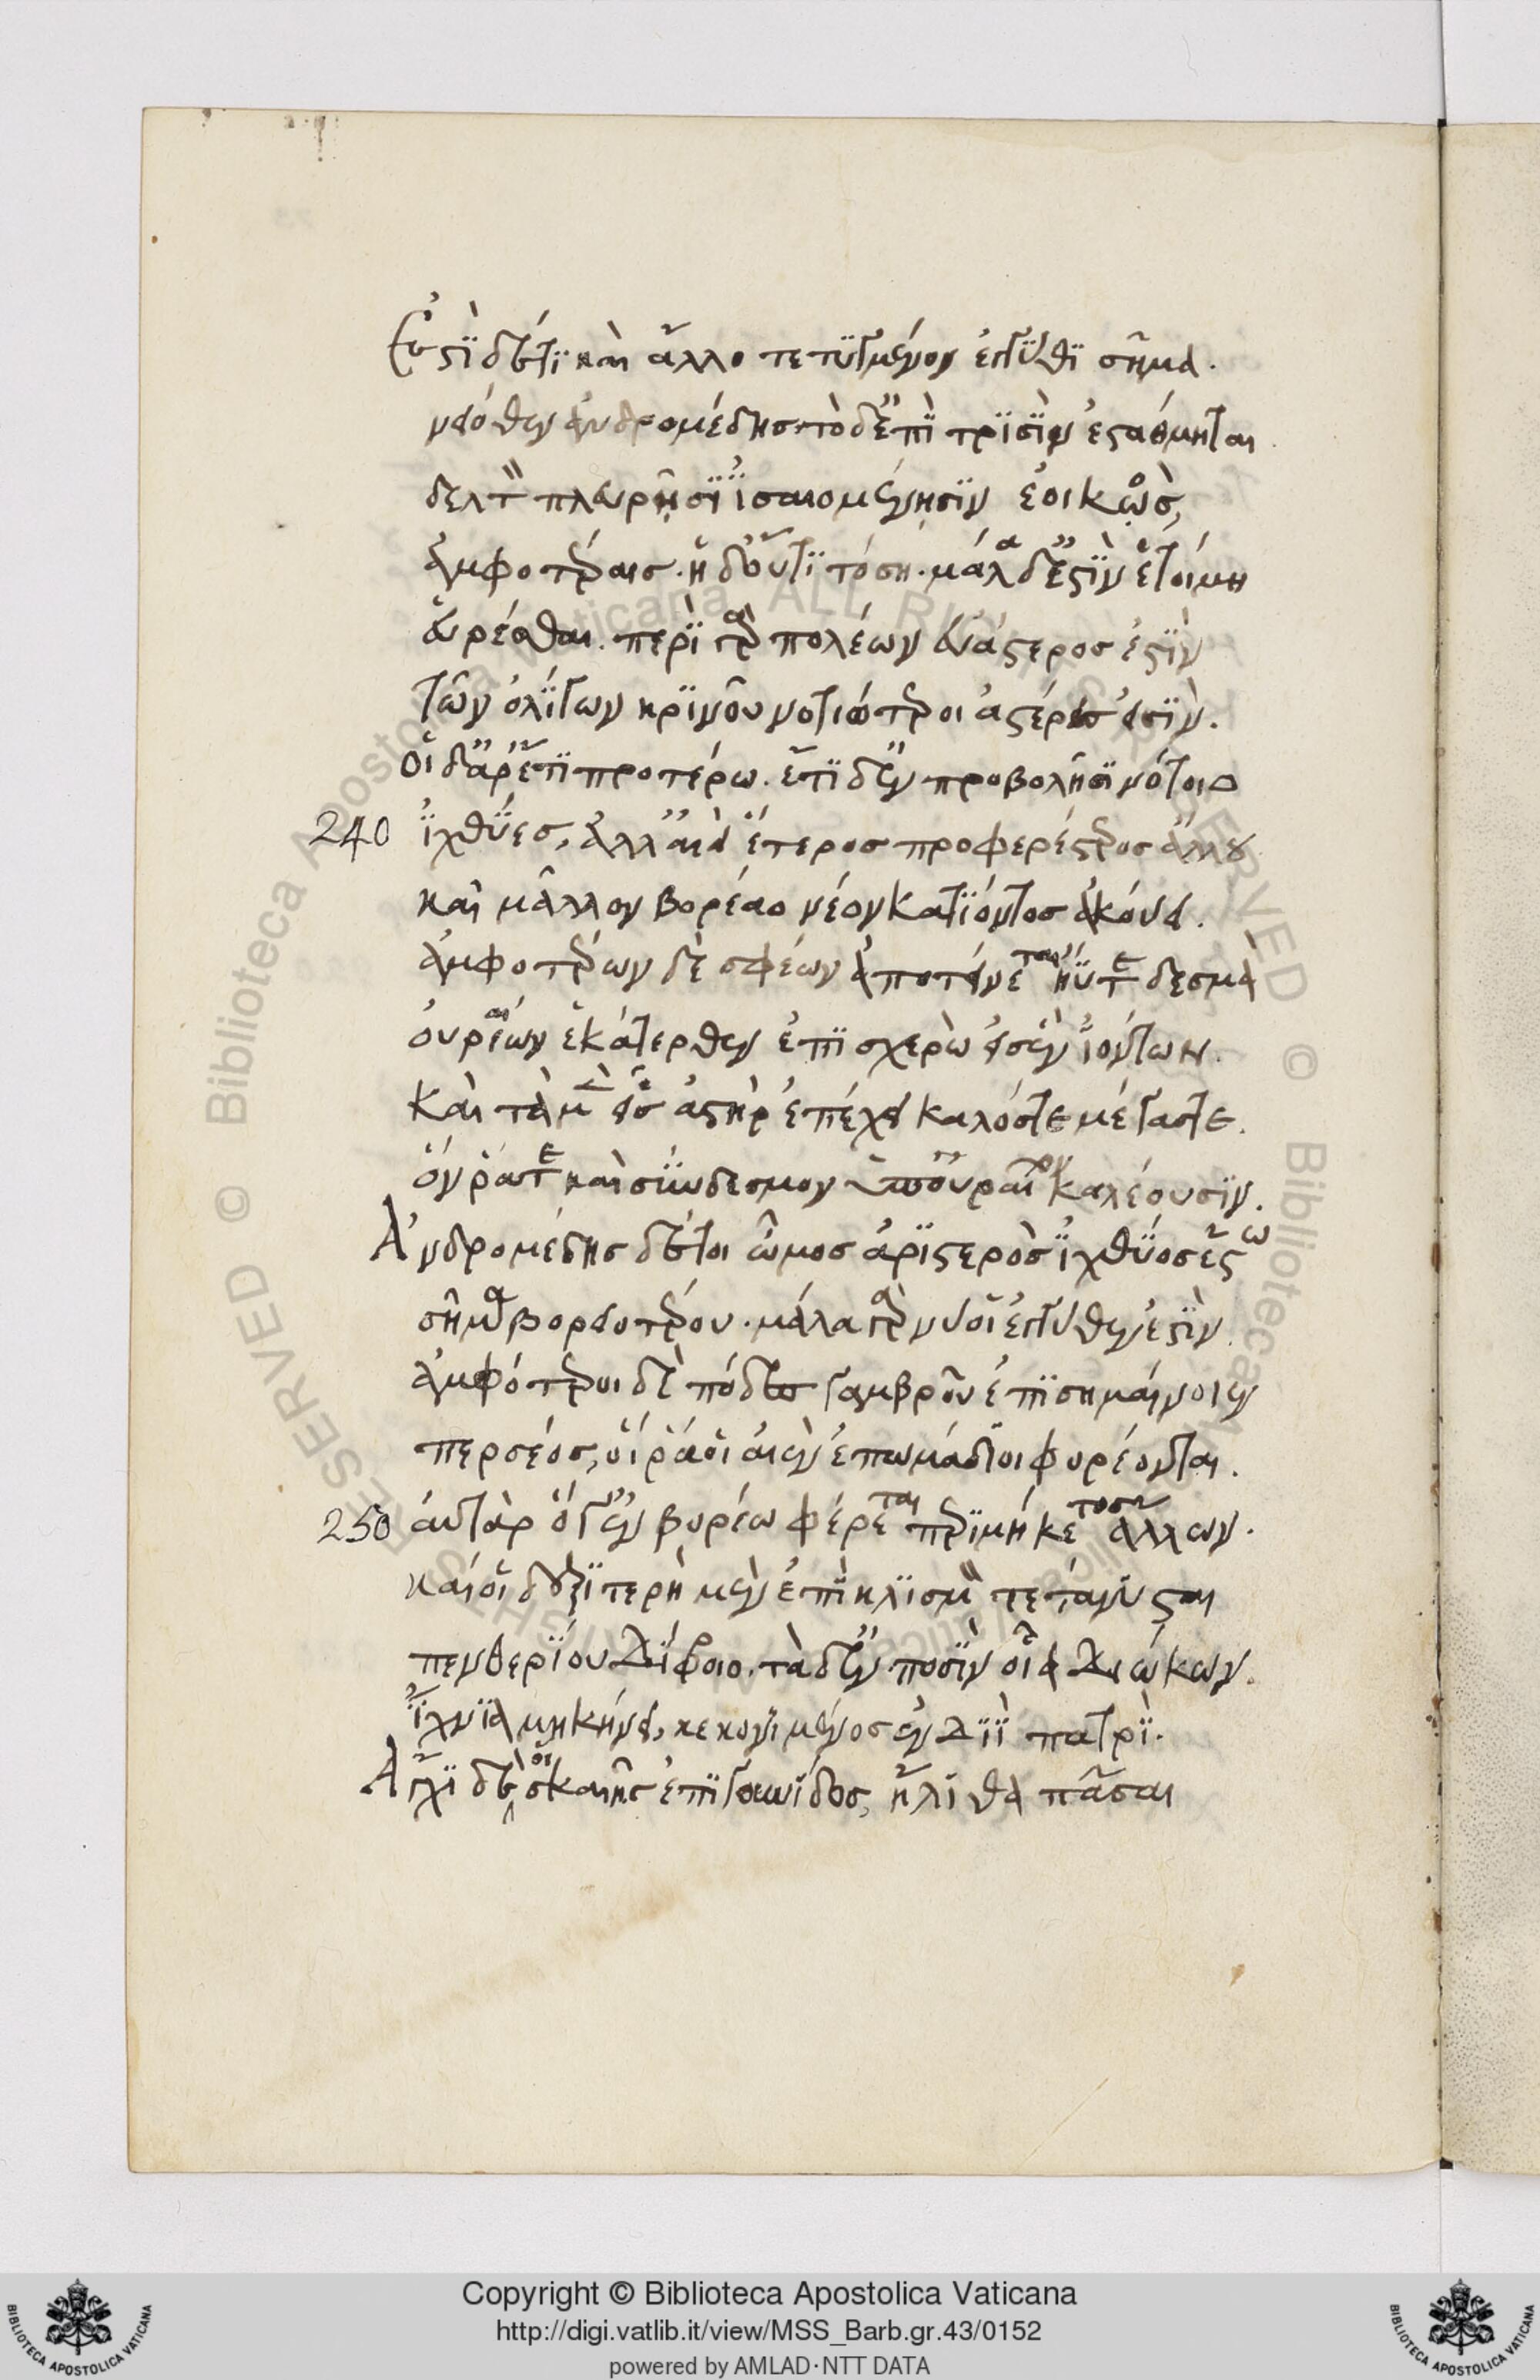 Ἔστι δέ τι καὶ ἄλλο τετυγμένον ἐγγύθι σῆμα.
νειόθεν ἀνδρομέδης· τὸ δ' ἐπὶ τρισὶν ἐστάθμηται
δελτωτὸν πλευρῆσιν ἰσαιομένησιν ἐοικὼς,
ἀμφοτέραις. ἡ δ' οὔτι τόση. μάλα δ' ἐστὶν ἑτοίμη
εὑρέσθαι. περὶ γὰρ πολέων εὐάστερος ἐστὶν
τῶν ὀλίγων κριοῦ νοτιώτεροι ἀστέρες εἰσίν.
οἱ δ' ἄρ' ἔτι προτέρω. ἔτι δ' ἐν προβολῆσι νότοιο
240 ἰχθύες, ἀλλ' αἰεὶ ἕτερος προφερέστερος ἄλλου
καὶ μᾶλλον βορέαο νέον κατιόντος ἀκούει.
ἀμφοτέρων δὲ σφέων ἀποτείνεται ἠΰτε δεσμὰ
οὐραίων ἑκάτερθεν ἐπισχερὼ εἰσὲν ἰόντων.
καὶ τὰ μὲν εἷς ἀστὴρ ἐπέχει καλόστε μέγαστε.
ὅν ῥάτε καὶ σύνδεσμον ὑπουραῖον καλέουσιν.
Ἀνδρομέδης δέ τοι ὦμος ἀριστερὸς ἰχθύος ἔστω
σῆμα βορειοτέρου. μάλα γάρ νύ οἱ ἐγγύθεν ἐστίν
ἀμφότεροι δὲ πόδες γαμβρὸν ἐπισημαίνοιεν
περσέος, οἵ ῥά οἱ αἰὲν ἐπωμάδιοι φορέονται.
250 αὐτὰρ ὅγ' ἐν βορέω φέρεται περιμήκετος ἄλλων.
καί οἱ δεξιτερὴ μὲν ἐπὶ κλισμὸν τετάνυσται
πενθερίου δίφροιο. τὰ δ' ἐν ποσὶν οἷα διώκων.
ἴχνια μηκύνει, κεκονιμένος ἐν διῒ πατρί.
Ἄγχι δέ οἱ σκαιῆς ἐπιγουνίδος, ἤλιθα πᾶσαι
Copyright © Biblioteca Apostolica Vaticana
http://digi.vatlib.it/view/MSS_Barb.gr.43/0152
powered by AMLAD·NTT DATA